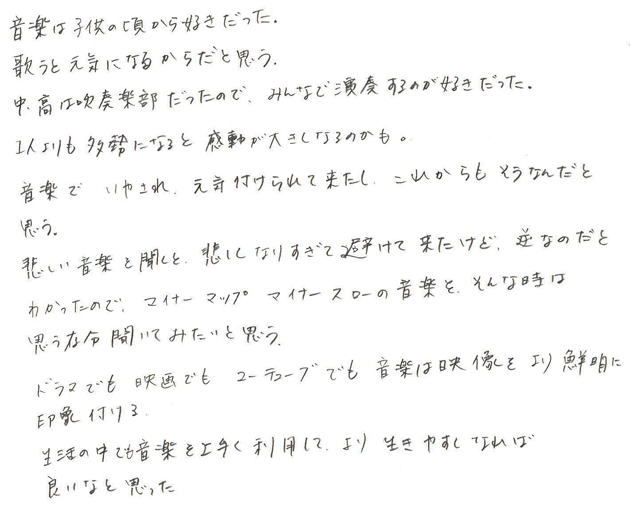 音楽は子供の頃から好きだった.
歌うと元気になるからだと思う.
中.高は吹奏楽部だったので、みんなで演奏するのが好きだった.
1人よりも多勢になると感動が大きくなるのかも。
音楽でいやされ、元気付けられて来たし、これからもそうなんだと
思う。
悲しい音楽を聞くと、悲しくなりすぎて避けて来たけど、逆なのだと
わかったので、マイナーマップ マイナースローの音楽を、そんな時は
思う存分聞いてみたいと思う.
ドラマでも映画でもユーチューブでも音楽は映像をより鮮明に
印象付ける.
生活の中でも音楽を上手く利用して、より生きやすくなれば
良いなと思った